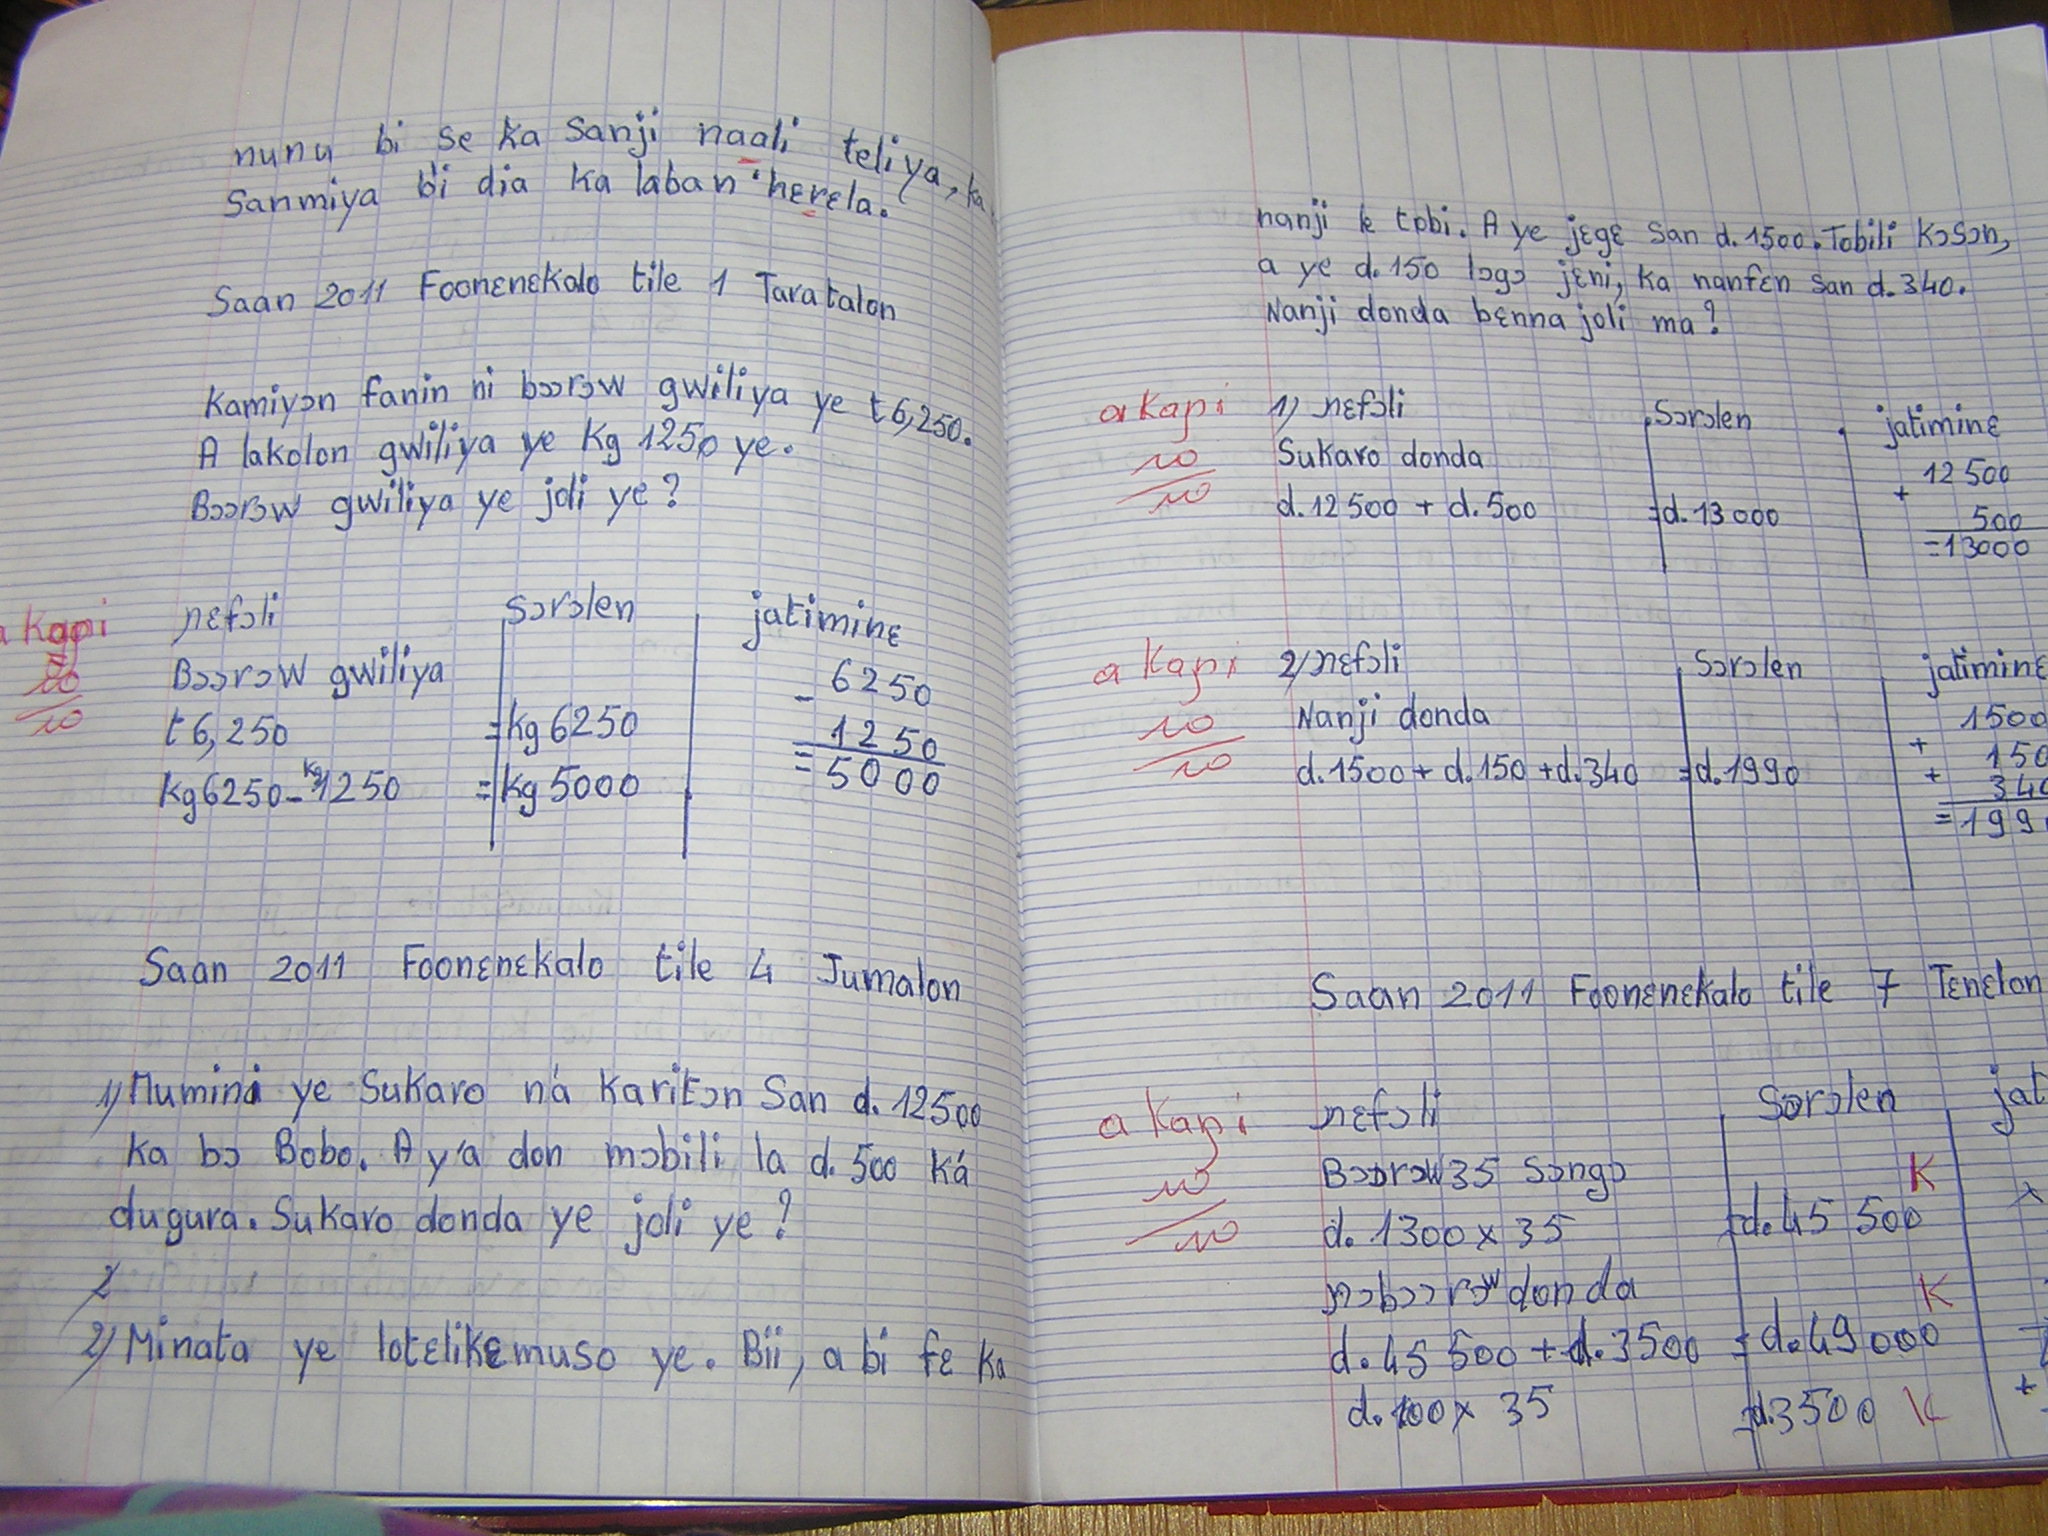 nunu bi se ka sanji naali teliya, ka
sanmiya bi dia ka laban hɛrɛla.
Saan 2011 Foonɛnɛkalo tile 1 Taratalon
Kamiyɔn fanin ni bɔɔrɔw gwiliya ye t 6,250.
A lakolon gwiliya ye kg 1250 ye.
Bɔɔrɔw gwiliya ye joli ye?
a kaɲi ɲɛfɔli sɔrɔlen jatiminɛ
10 Bɔɔrɔw gwiliya - 6250
10 t 6,250 = kg 6250 1250
kg 6250 - kg 1250 = kg 5000 = 5000
Saan 2011 Foonɛnɛkalo tile 4 Jumalon
1) Mumini ye sukaro ná karitɔn san d. 12500
ka bɔ Bobo. A y'a don mɔbili la d. 500 ká
dugura. Sukaro donda ye joli ye?
2
2) Minata ye lotɛlikɛmuso ye. Bii, a bi fɛ ka
nanji k tobi. A ye jɛgɛ san d. 1500. Tobili kɔsɔn,
a ye d. 150 lɔgɔ jɛni, ka nanfɛn san d. 340.
Nanji donda bɛnna joli ma?
a kaɲi 1) ɲɛfɔli sɔrɔlen jatiminɛ
10 Sukaro donda 12500
10 d. 12500 + d. 500 = d. 13000 + 500
= 13000
a kaɲi 2) ɲɛfɔli sɔrɔlen jatiminɛ
10 Nanji donda 1500
10 d. 1500 + d. 150 + d. 340 = d. 1990 + 150
+ 340
= 199
Saan 2011 Foonɛnɛkalo tile 7 Tɛnɛlon
a kaɲi ɲɛfɔli sɔrɔlen jat
10 Bɔɔrɔw 35 sɔngɔ K
10 d. 1300 x 35 = d. 45 500 x
ɲɔbɔɔrɔw donda K
d. 45 500 + d. 3500 = d. 49000
d. 100 x 35 = d. 3500 K +